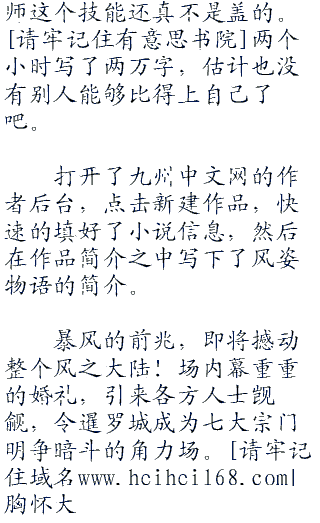 师这个技能还真不是盖的。
[请牢记住有意思书院]两个
小时写了两万字，估计也没
有别人能够比得上自己了
吧。
打开了九州中文网的作
者后台，点击新建作品，快
速的填好了小说信息，然后
在作品简介之中写下了风姿
物语的简介。
暴风的前兆，即将撼动
整个风之大陆！场内幕重重
的婚礼，引来各方人士觊
觎，令暹罗城成为七大宗门
明争暗斗的角力场。[请牢记
住域名www.hcihci168.com|
胸怀大